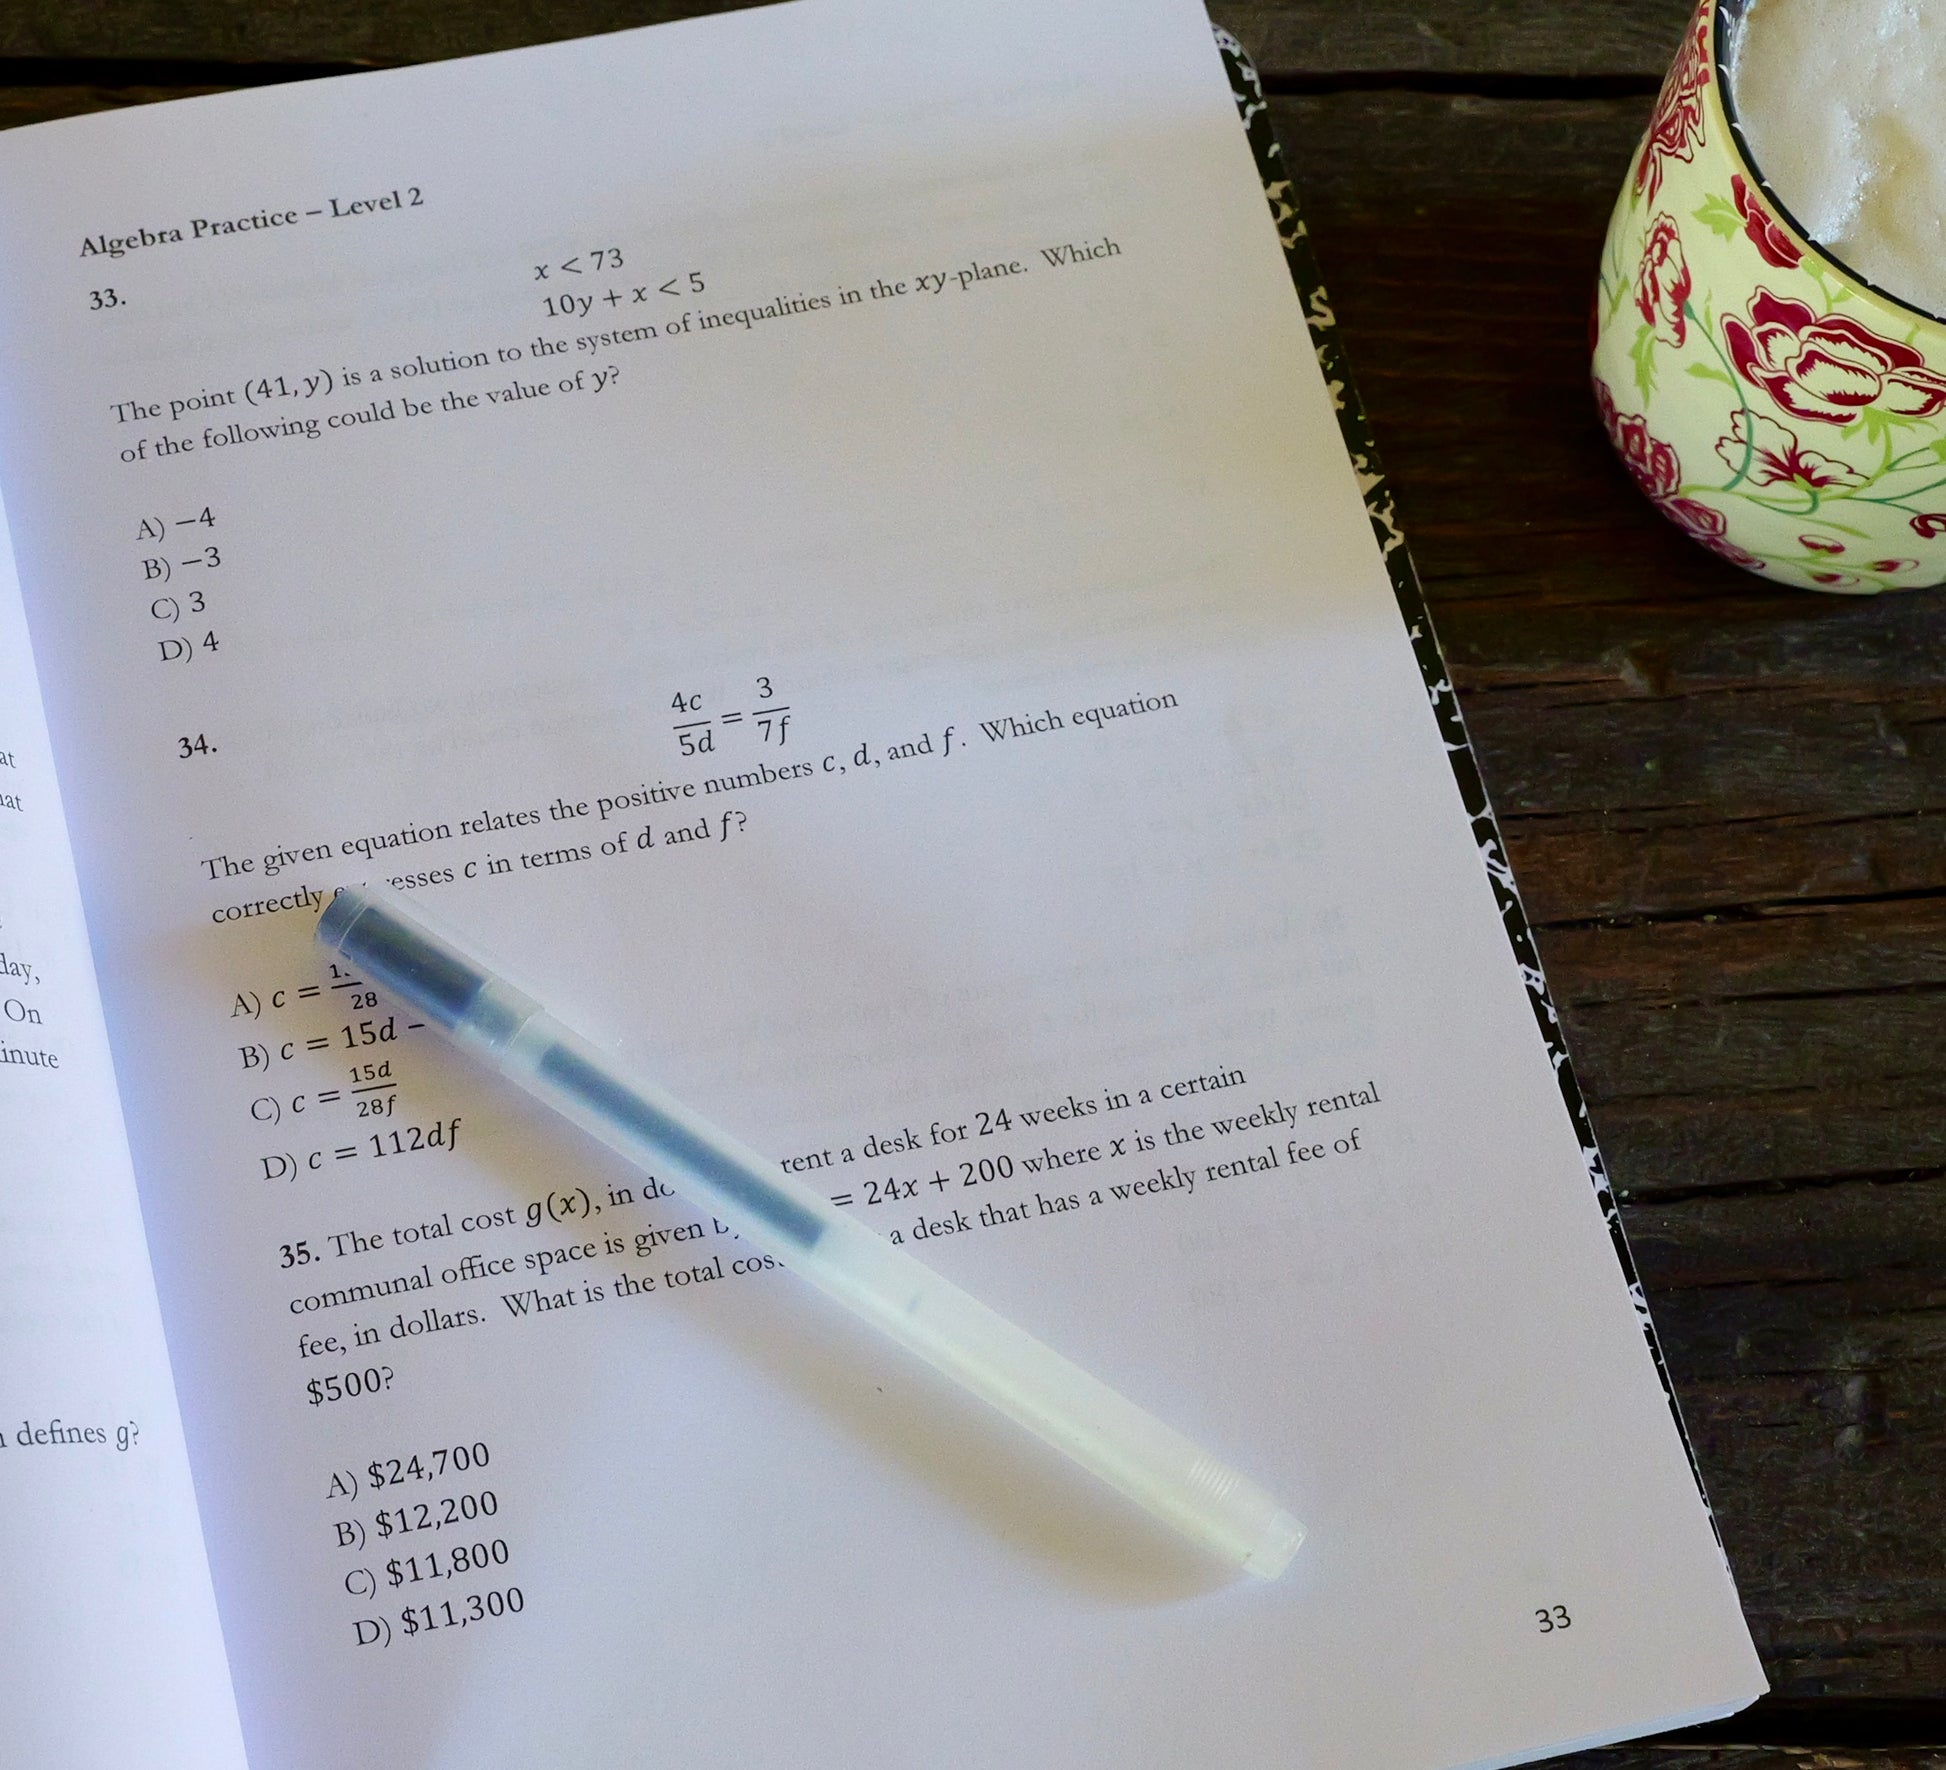 at
at
day,
On
inute
defines g?
Algebra Practice – Level 2
33.
x < 73
10y + x < 5
The point (41, y) is a solution to the system of inequalities in the xy-plane. Which
of the following could be the value of y?
A) −4
B) −3
C) 3
D) 4
34.
4c/5d = 3/7f
The given equation relates the positive numbers c, d, and f. Which equation
correctly esses c in terms of d and f?
A) c = 28
B) c = 15d −
C) c = 15d/28f
D) c = 112df
35. The total cost g(x), in rent a desk for 24 weeks in a certain
communal office space is given = 24x + 200 where x is the weekly rental
fee, in dollars. What is the total a desk that has a weekly rental fee of
$500?
A) $24,700
B) $12,200
C) $11,800
D) $11,300
33